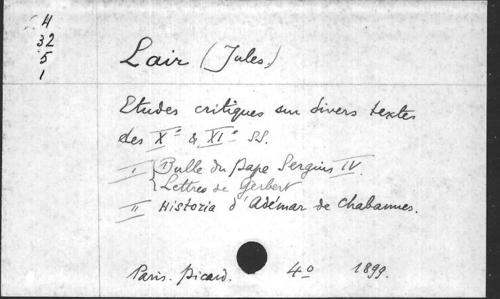 4
32
5
1
Lair (Jules)
Etudes critiques sur divers textes
des Xe & XIe SS.
I Bulle du Pape Sergius IV.
Lettres de Gerbert
II Historia d'Adémar de Chabannes.
Paris. Picard. 4o 1899.